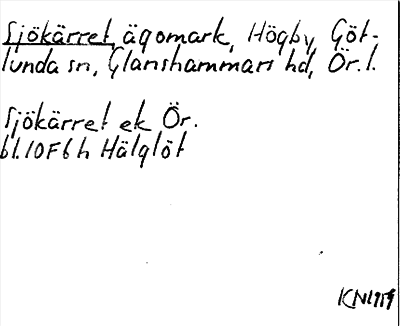 Sjökärret, ägomark, Högby, Göt-
lunda sn, Glanshammars hd, Ör. l.
Sjökärret ek Ör.
bl. 10F6h Hälglöt
KN1959